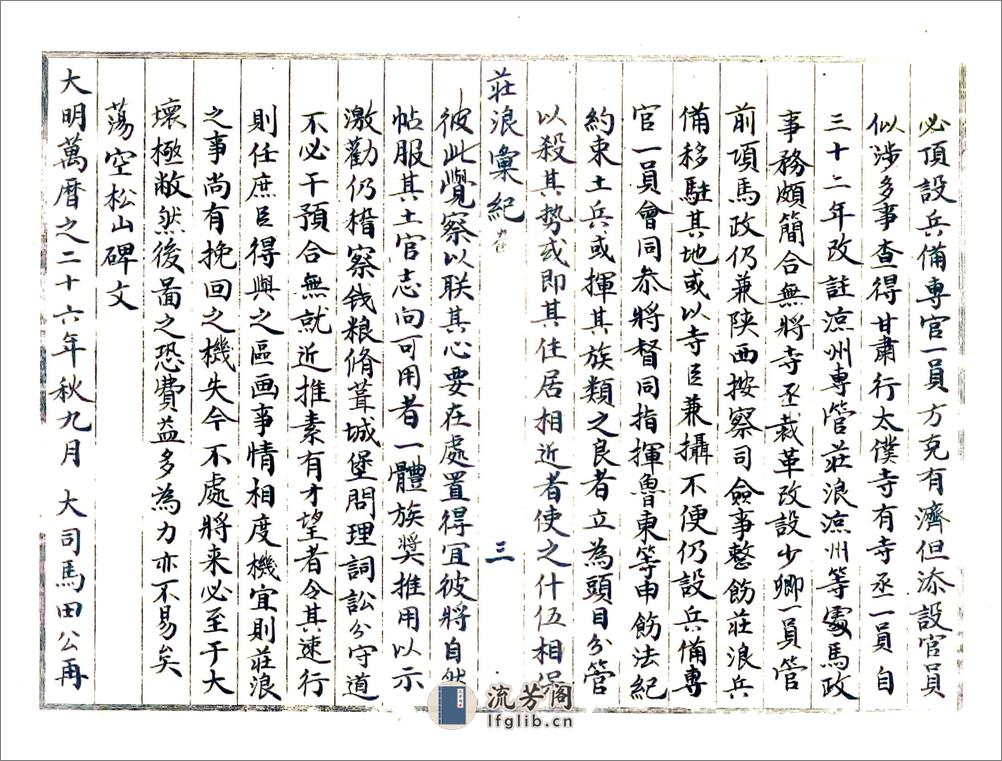 必頂設兵備專官一員方克有濟但添設官員
似涉多事查得甘肅行太僕寺有寺丞一員自
三十二年改註涼州專管莊浪涼州等處馬政
事務頗簡合無將寺丞裁革改設少卿一員管
前項馬政仍兼陕西按察司僉事整飭莊浪兵
備移駐其地或以寺臣兼攝不便仍設兵備專
官一員會同叅將督同指揮魯東等申飭法紀
約束土兵或揮其族類之良者立為頭目分管
以殺其勢或即其住居相近者使之什伍相保
莊浪彙紀 卷 三
彼此覺察以联其心要在處置得宜彼將自然
帖服其土官志向可用者一體族奬推用以示
激勸仍稽察錢粮脩葺城堡問理詞訟分守道
不必干預合無就近推素有才望者令其速行
則任庶臣得與之區画事情相度機宜則莊浪
之事尚有挽回之機失今不處將来必至于大
壞極敝然後畐之恐費益多為力亦不易矣
蕩空松山碑文
大明萬曆之二十六年秋九月 大司馬田公再
流芳阁
lfglib.cn